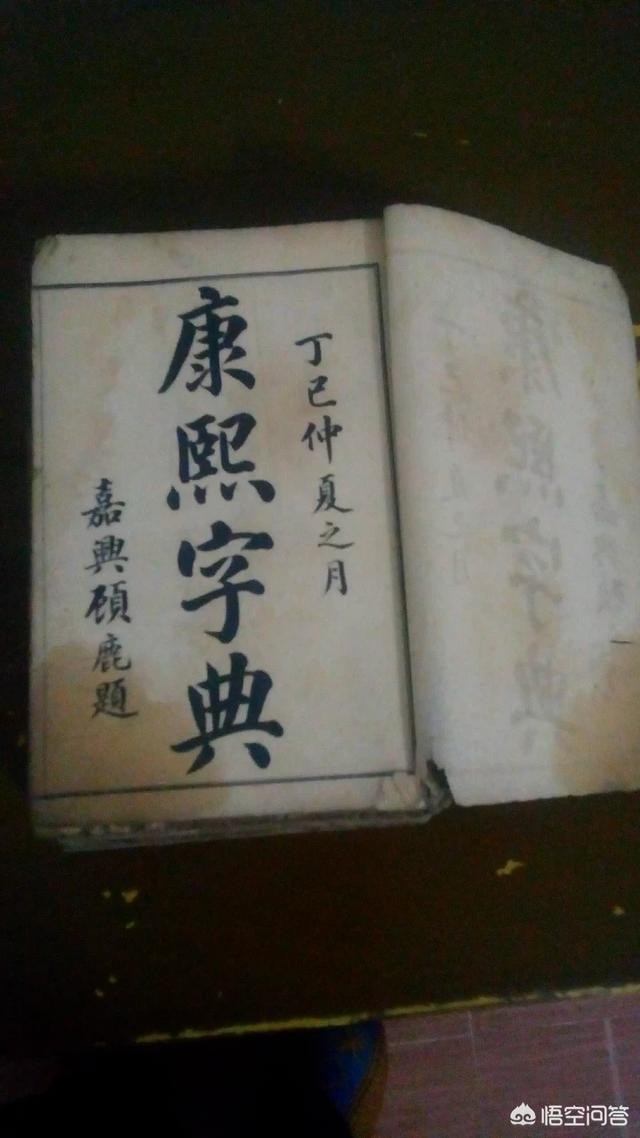 丁巳仲夏之月
康熙字典
嘉興顧鹿題
悟空问答